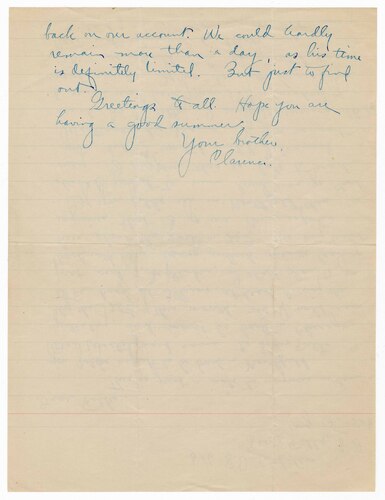 back on our account. We could hardly
remain more than a day, as his time
is definitely limited. But just to find
out.
Greetings to all. Hope you are
having a good summer.
Your brother,
Clarence.